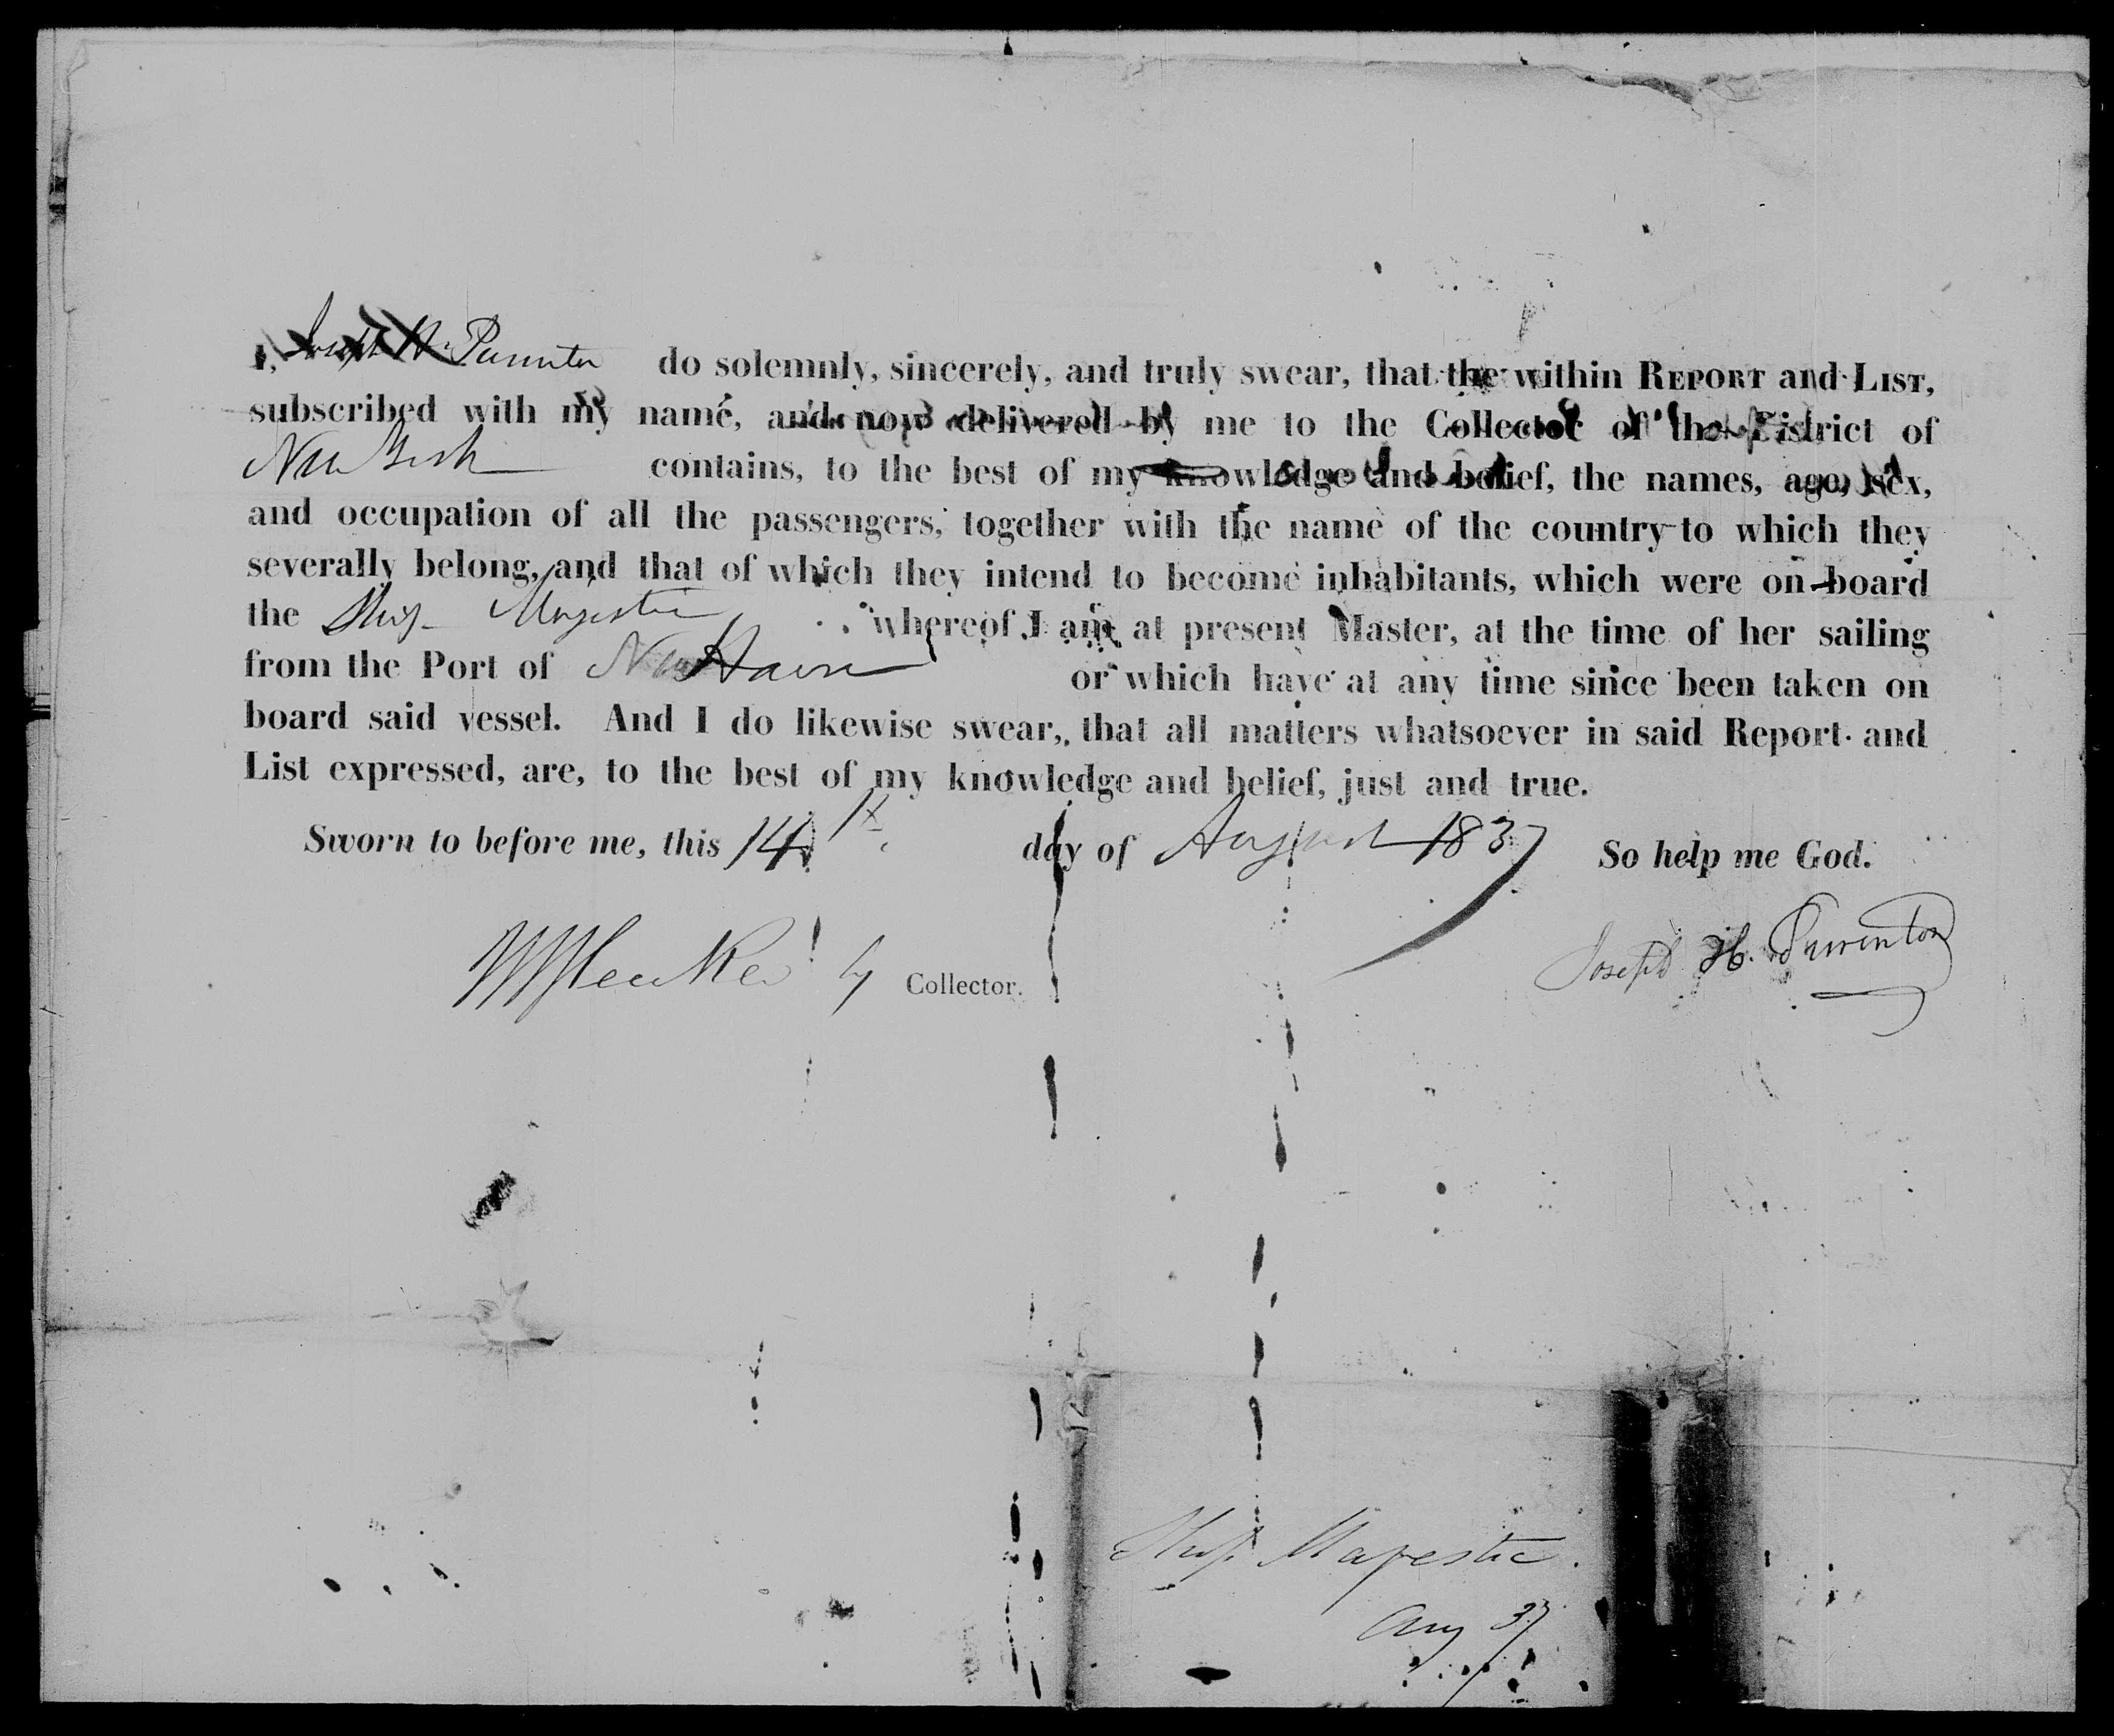 I, Joseph H. Purinton do solemnly, sincerely, and truly swear, that the within REPORT and LIST,
subscribed with my name, and now delivered by me to the Collector of the District of
New York contains, to the best of my knowledge and belief, the names, age, sex,
and occupation of all the passengers, together with the name of the country to which they
severally belong, and that of which they intend to become inhabitants, which were on board
the Ship Majestic whereof I am at present Master, at the time of her sailing
from the Port of New Haven or which have at any time since been taken on
board said vessel. And I do likewise swear, that all matters whatsoever in said Report and
List expressed, are, to the best of my knowledge and belief, just and true.
Sworn to before me, this 14 day of August 1837 So help me God.
Joseph H. Purinton
Collector.
Ship Majestic.
Aug 37